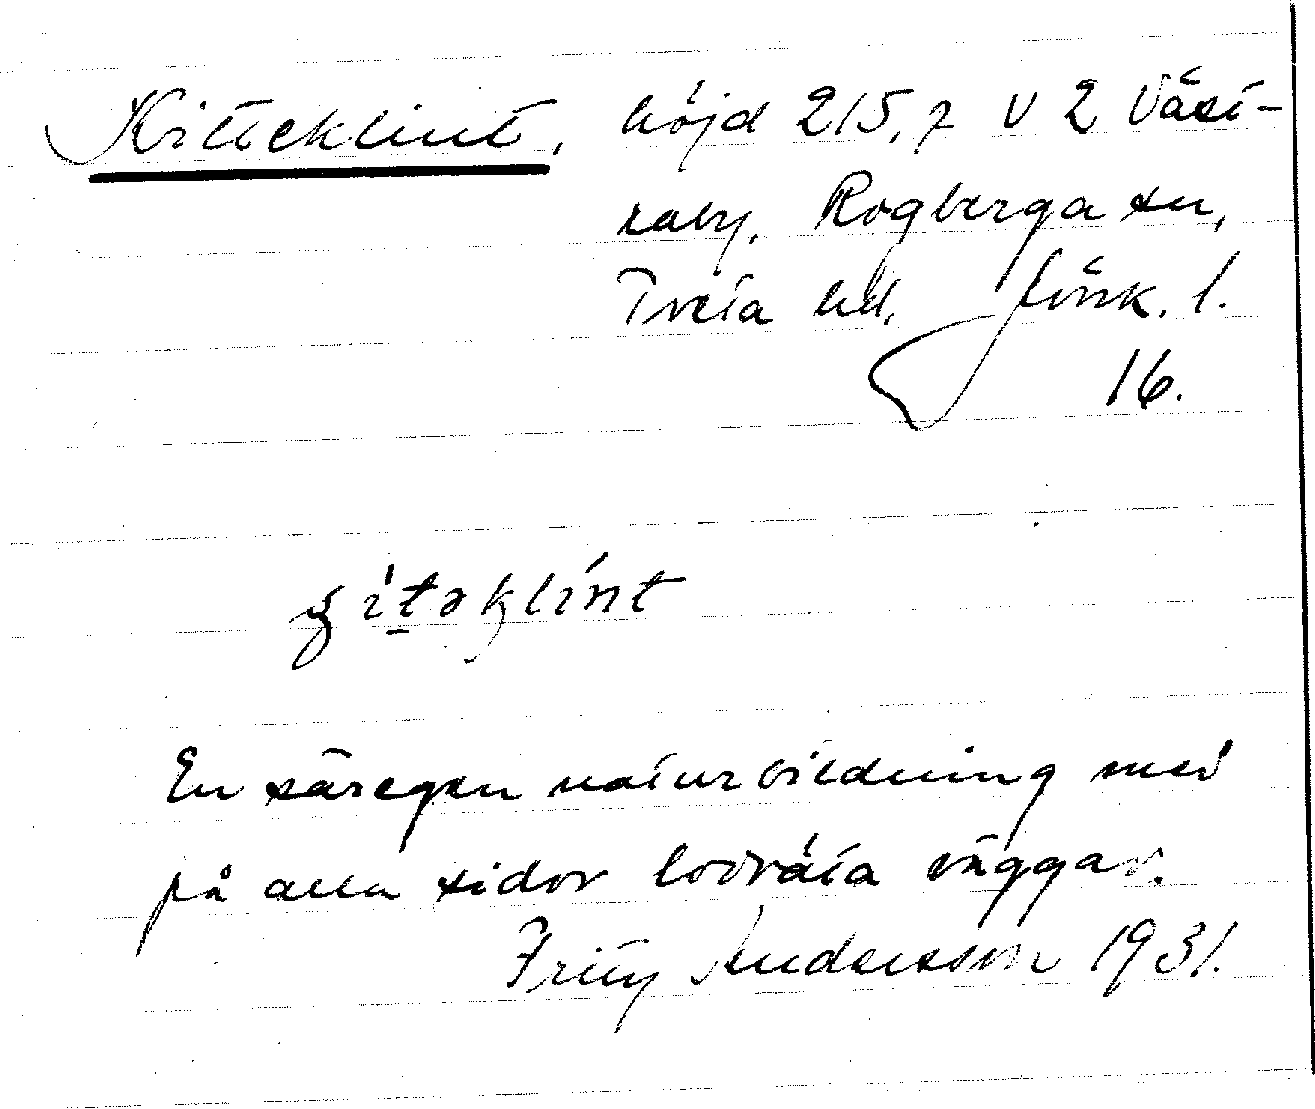 Kitteklint, höjd 215,7 V 2 Väst-
raby, Rogberga sn,
Tveta hd, Jönk. l.
16.
En säregen naturbildning med
på alla sidor lodräta väggar.
Frity Andersson 1931.